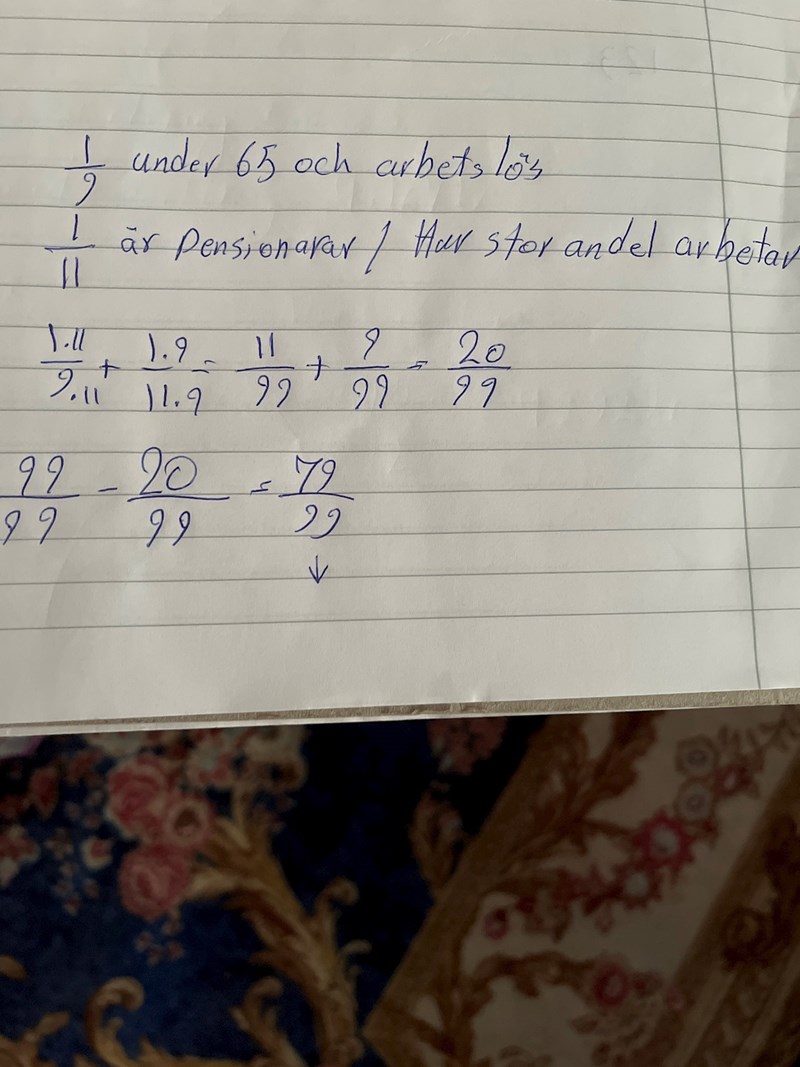 1/9 under 65 och arbetslös
1/11 är Pensionarar / Hur stor andel arbetar
1·11/9·11 + 1·9/11·9 = 11/99 + 9/99 = 20/99
99/99 - 20/99 = 79/99
↓